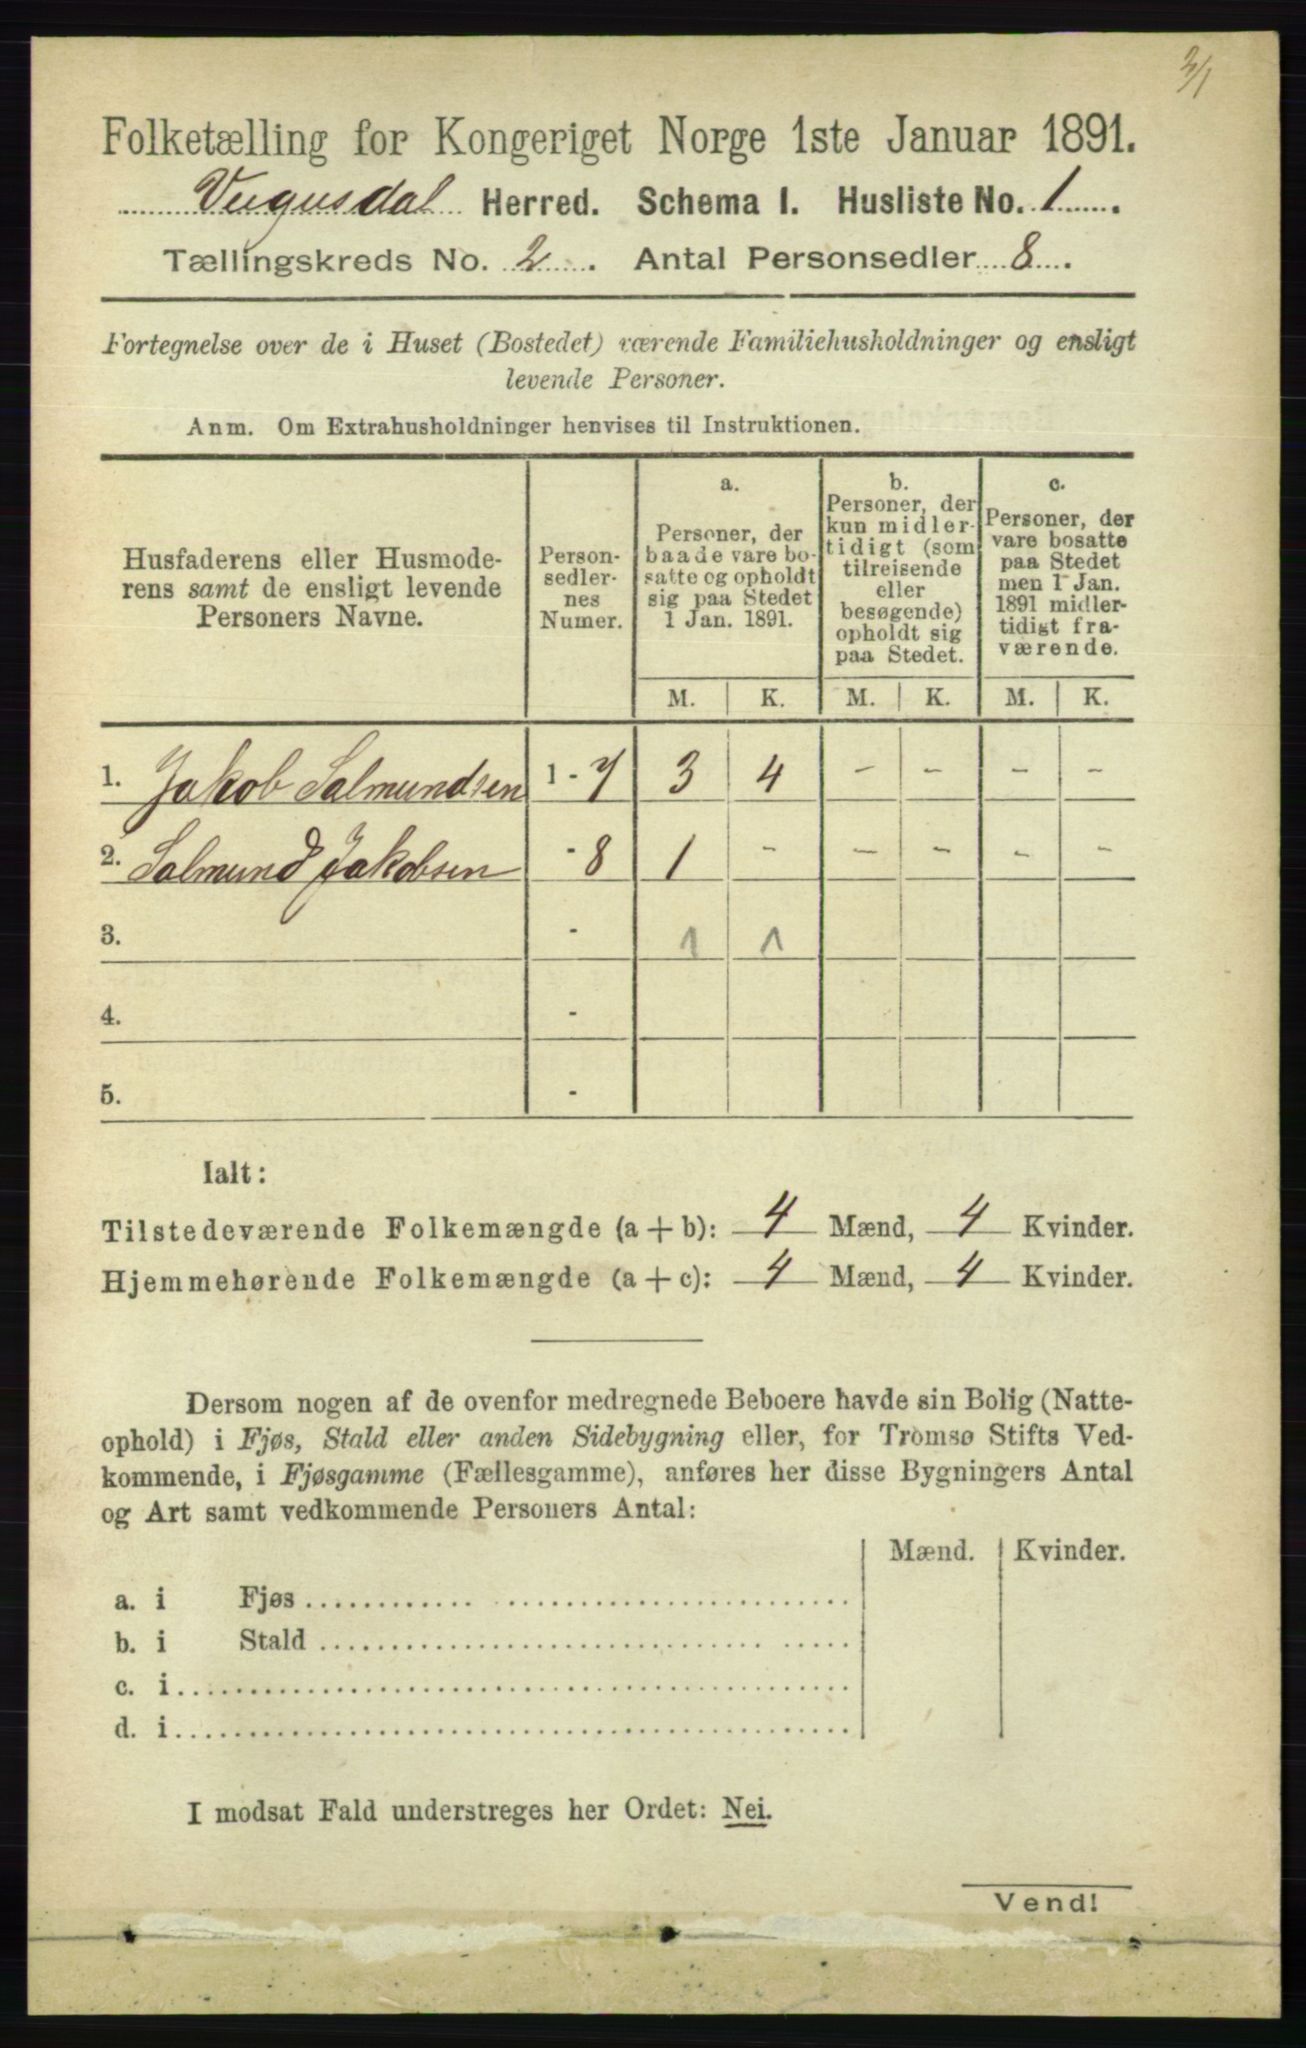 2/1
Folketælling for Kongeriget Norge 1ste Januar 1891.
Vegusdal Herred. Schema I. Husliste No. 1.
Tællingskreds No. 2. Antal Personsedler 8.
Fortegnelse over de i Huset (Bostedet) værende Familiehusholdninger og ensligt
levende Personer.
Anm. Om Extrahusholdninger henvises til Instruktionen.
Husfaderens eller Husmode-
rens samt de ensligt levende
Personers Navne.
Person-
sedler-
nes
Numer.
a.
Personer, der
baade vare bo-
satte og opholdt
sig paa Stedet
1 Jan. 1891.
b.
Personer, der
kun midler-
tidigt (som
tilreisende
eller
besøgende)
opholdt sig
paa Stedet.
c.
Personer, der
vare bosatte
paa Stedet
men 1 Jan.
1891 midler-
tidigt fra-
værende.
M. K. M. K. M. K.
1. Jakob Salmundsen 1 - 7 3 4 - - - -
2. Salmund Jakobsen - 8 1 - - - - -
3. - 1 1
4. -
5. -
Ialt:
Tilstedeværende Folkemængde (a + b): 4 Mænd, 4 Kvinder.
Hjemmehørende Folkemængde (a + c): 4 Mænd, 4 Kvinder.
Dersom nogen af de ovenfor medregnede Beboere havde sin Bolig (Natte-
ophold) i Fjøs, Stald eller anden Sidebygning eller, for Tromsø Stifts Ved-
kommende, i Fjøsgamme (Fællesgamme), anføres her disse Bygningers Antal
og Art samt vedkommende Personers Antal:
Mænd. Kvinder.
a. i Fjøs
b. i Stald
c. i
d. i
I modsat Fald understreges her Ordet: Nei.
Vend!